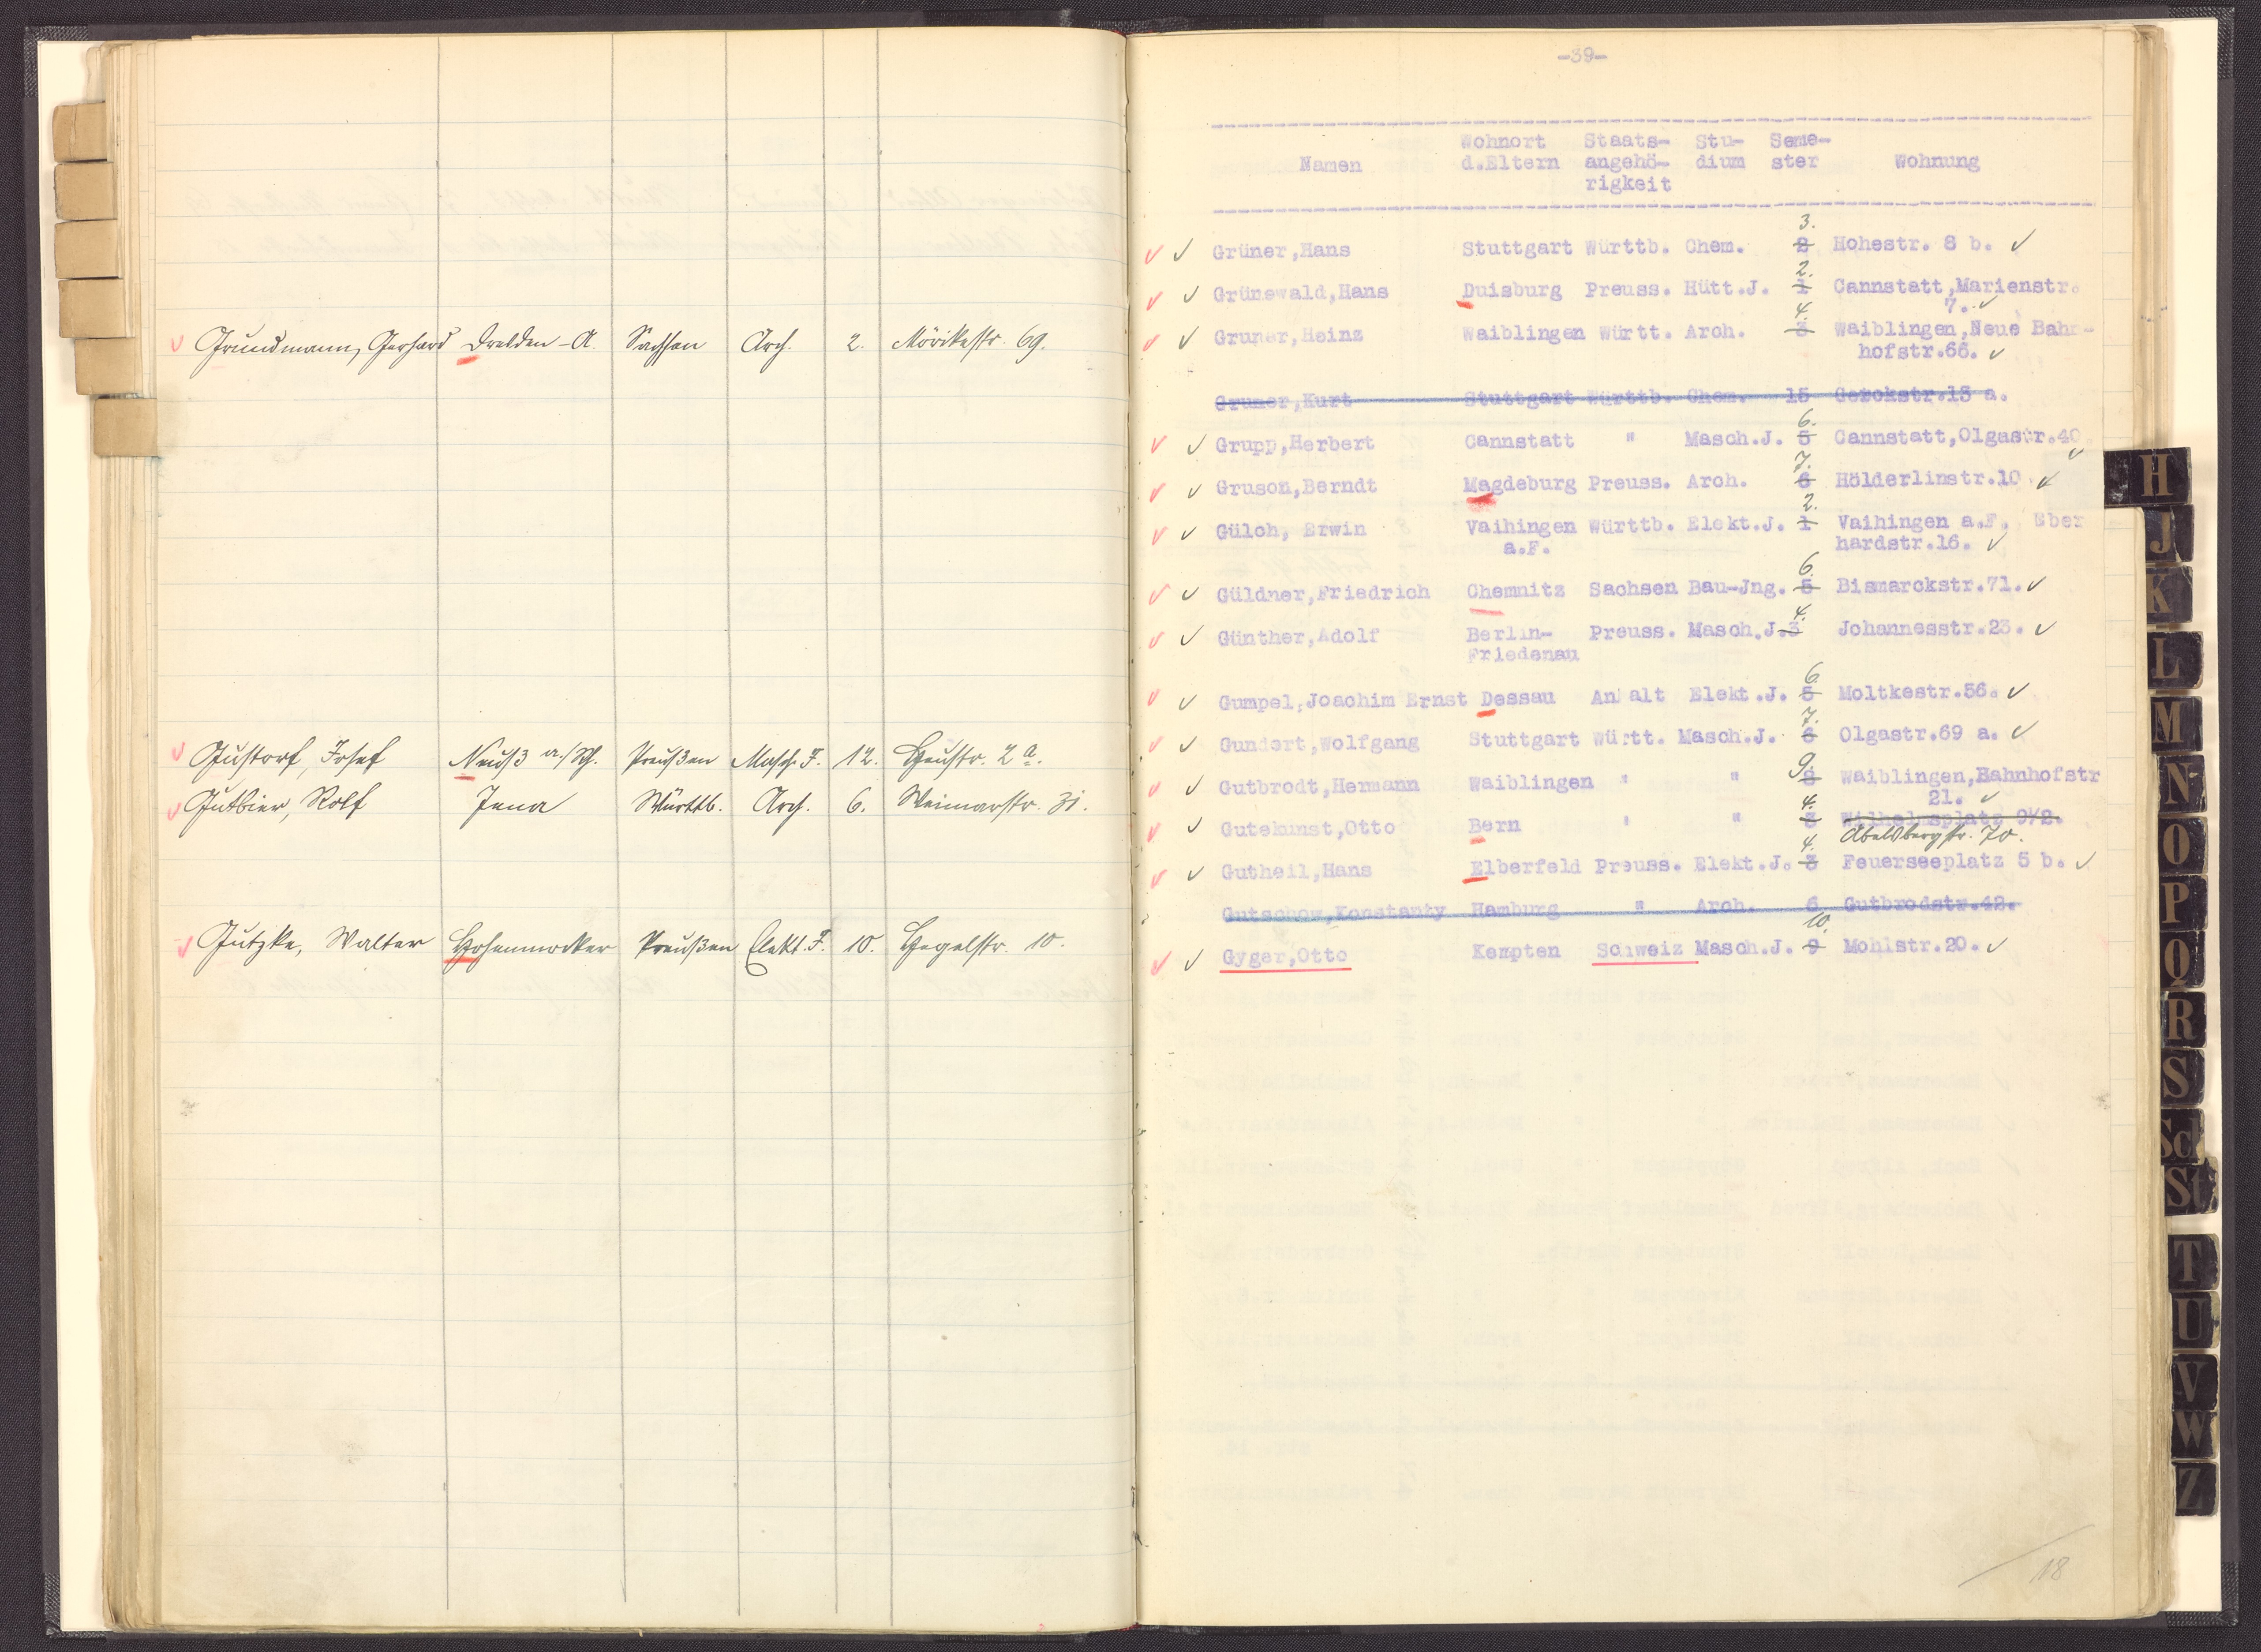 Grundmann, Gerhard Dresden-A. Sachsen Arch. 2. Mörikestr. 69.
Gustorf, Josef Neuß a./Rh. Preußen Masch. J. 12. Heustr. 2 a.
Gutbier, Rolf Jena Württb. Arch. 6. Weimarstr. 31.
Gutzke, Walter Hohenmocker Preußen Elekt. J. 10. Hegelstr. 10.
-39-
Wohnort Staats- Stu- Seme-
Namen d.Eltern angehö- dium ster Wohnung
rigkeit
3.
Grüner,Hans Stuttgart Württb. Chem. 2 Hohestr. 8 b.
2.
Grünewald,Hans Duisburg Preuss. Hütt.J. 1 Cannstatt,Marienstr.
7.
4.
Gruner,Heinz Waiblingen Württ. Arch. 3 Waiblingen,Neue Bahn-
hofstr.66.
Gruner,Kurt Stuttgart Württb. Chem. 15 Gerokstr.13 a.
6.
Grupp,Herbert Cannstatt " Masch.J. 5 Cannstatt,Olgastr.40.
7.
Gruson,Berndt Magdeburg Preuss. Arch. 6 Hölderlinstr.10
2.
Gülch, Erwin Vaihingen Württb. Elekt.J. 1 Vaihingen a.F. Eber
a.F. hardstr.16.
6.
Güldner,Friedrich Chemnitz Sachsen Bau-Jng. 5 Bismarckstr.71.
4.
Günther,Adolf Berlin- Preuss. Masch.J. 3 Johannesstr.23.
Friedenau
6.
Gumpel,Joachim Ernst Dessau Anhalt Elekt.J. 5 Moltkestr.56.
7.
Gundert,Wolfgang Stuttgart Württ. Masch.J. 6 Olgastr.69 a.
9.
Gutbrodt,Hermann Waiblingen " " 8 Waiblingen,Bahnhofstr
21.
4.
Gutekunst,Otto Bern " " 3 Wilhelmsplatz 9½.
Abelsbergstr. 70.
4.
Gutheil,Hans Elberfeld Preuss. Elekt.J. 3 Feuerseeplatz 5 b.
Gutschow,Konstanty Hamburg " Arch. 6 Gutbrodstr.42.
10.
Gyger,Otto Kempten Schweiz Masch.J. 9 Mohlstr.20.
18
H
J
K
L
M
N
O
P
Q
R
S
Sch
St
T
U
V
W
Z